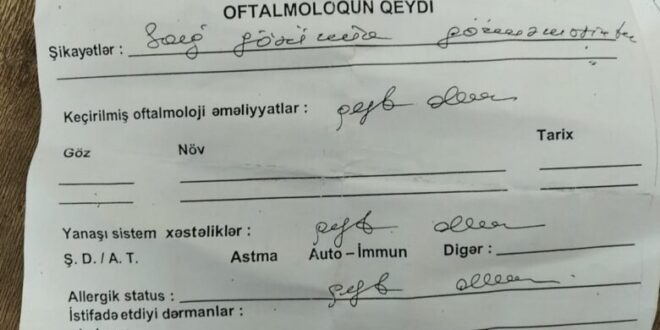 OFTALMOLOQUN QEYDİ
Şikayətlər : Sağ gözümüzə görməməsində
Keçirilmiş oftalmoloji əməliyyatlar : qeyb olunur
Göz Növ Tarix
Yanaşı sistem xəstəliklər : qeyb olunur
Ş. D. / A. T. Astma Auto – İmmun Digər :
Allergik status : qeyb olunur
İstifadə etdiyi dərmanlar :